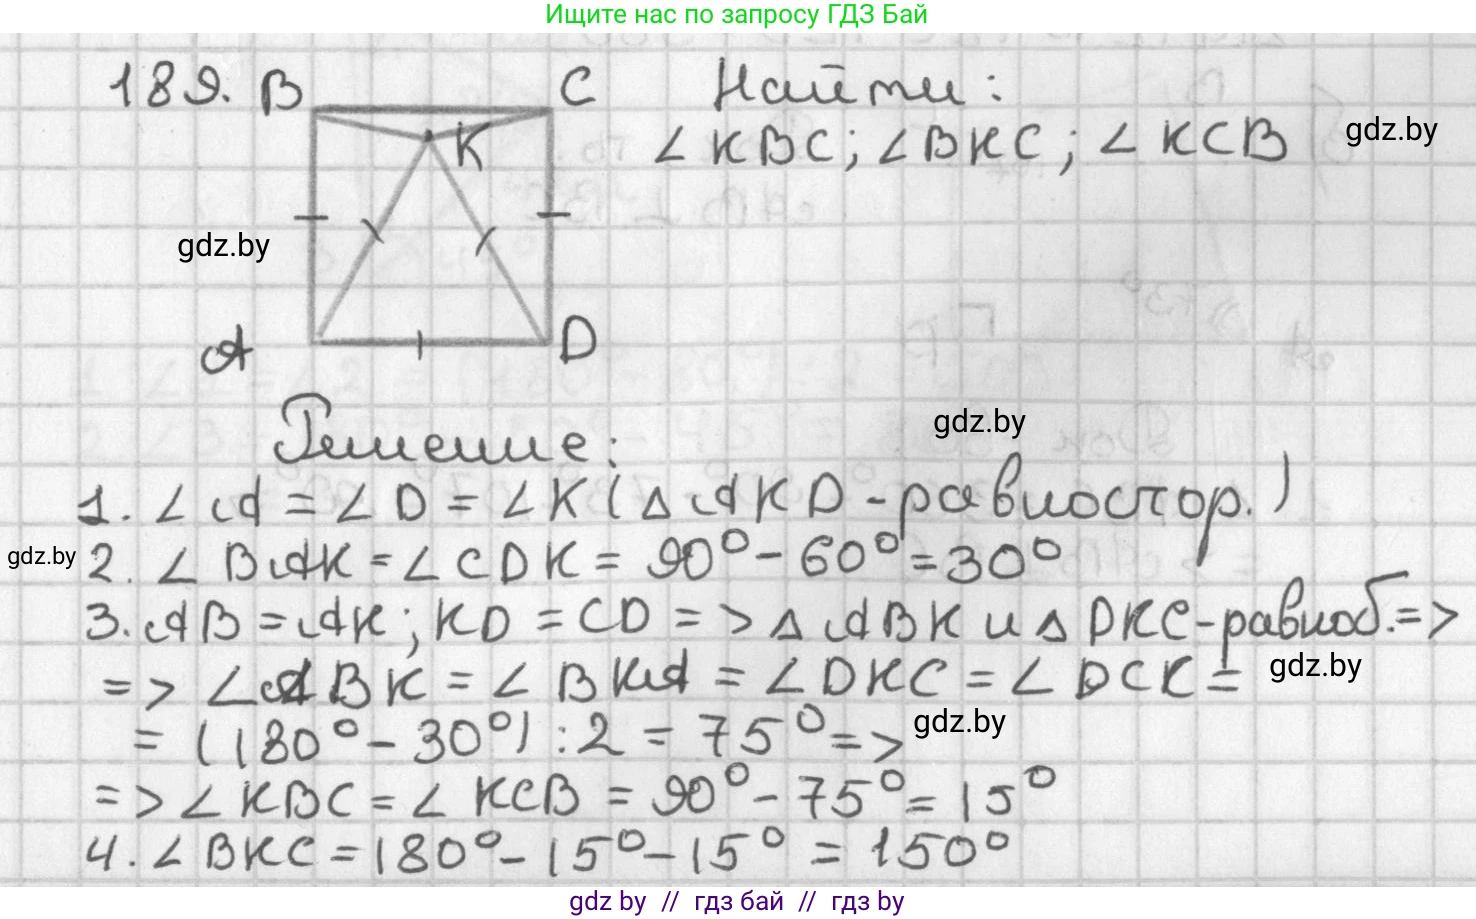 Ищите нас по запросу ГДЗ Бай
189. B C Найти:
∠KBC; ∠BKC; ∠KCB gdz.by
K
gdz.by
A D
Решение: gdz.by
1. ∠A = ∠D = ∠K (△AKD - равностор.)
gdz.by 2. ∠BAK = ∠CDK = 90° - 60° = 30°
3. AB = AK; KD = CD => △ABK и △DKC - равноб. =>
=> ∠ABK = ∠BKA = ∠DKC = ∠DCK = gdz.by
= (180° - 30°) : 2 = 75° => gdz.by
=> ∠KBC = ∠KCB = 90° - 75° = 15°
4. ∠BKC = 180° - 15° - 15° = 150°
gdz by // гдз бай // гдз by